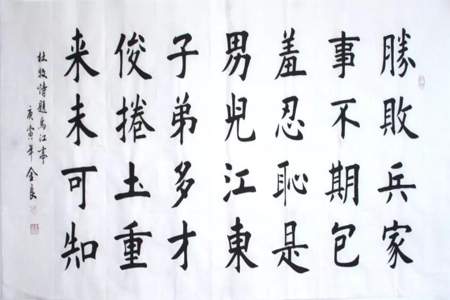 勝敗兵家
事不期包
羞忍恥是
男兒江東
子弟多才
俊捲土重
来未可知
杜牧詩題烏江亭
庚寅年金良